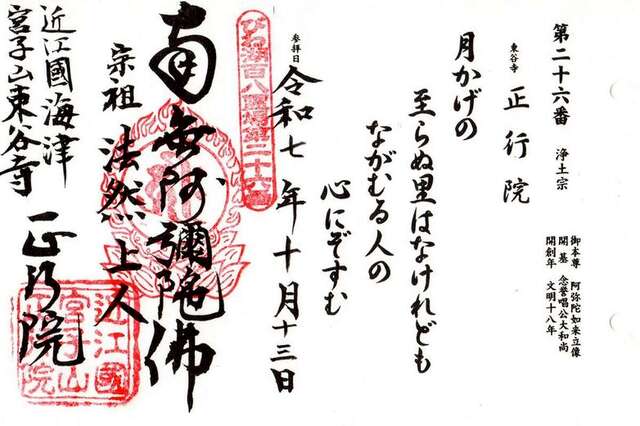 第二十六番 浄土宗
東谷寺 正行院
御本尊 阿弥陀如来立像
開基 念誉唱公大和尚
開創年 文明十八年
月かげの
至らぬ里はなけれども
ながむる人の
心にぞすむ
参拝日 令和七年十月十三日
びわ湖百八霊場第二十六番
南無阿彌陀佛
宗祖 法然上人
近江國海津
宮子山東谷寺
正行院
近江國
宮子山
正行院